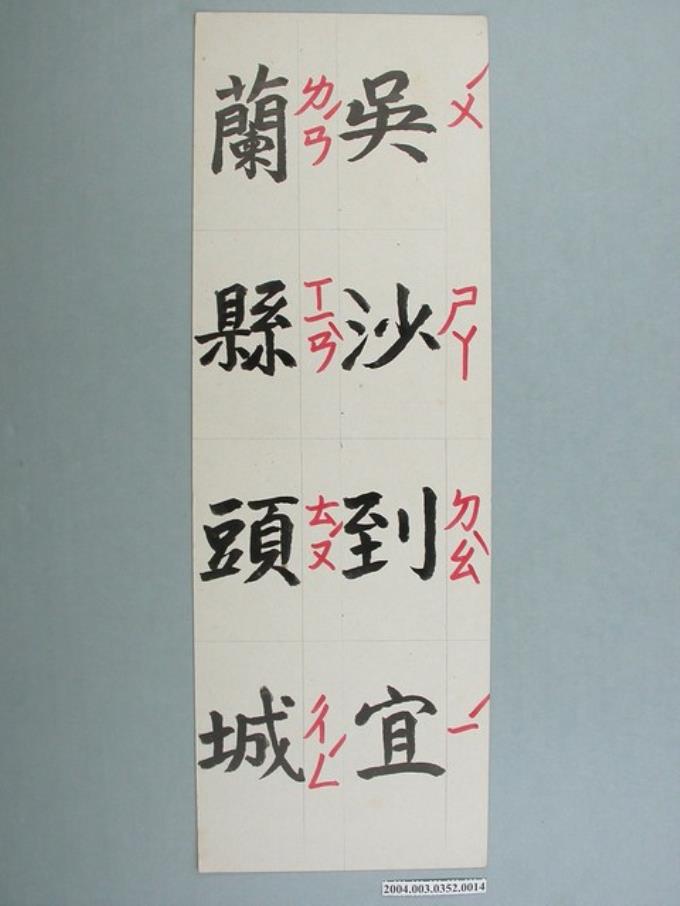 吳沙到宜
ㄨˊ ㄕㄚ ㄉㄠˋ ㄧˊ
蘭縣頭城
ㄌㄢˊ ㄒㄧㄢˋ ㄊㄡˊ ㄔㄥˊ
2004.003.0352.0014